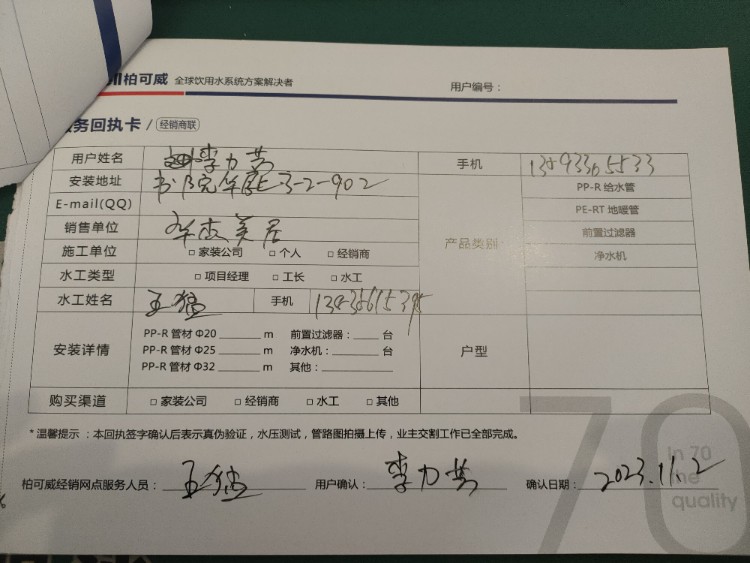 柏可威 全球饮用水系统方案解决者 用户编号：
务回执卡 / 经销商联
用户姓名 李力 手机
安装地址 3-2-902 PP-R 给水管
E-mail(QQ) PE-RT 地暖管
销售单位 华 美居 产品类别 前置过滤器
施工单位 □ 家装公司 □ 个人 □ 经销商 净水机
水工类型 □ 项目经理 □ 工长 □ 水工
水工姓名 王猛 手机
安装详情 户型
PP-R 管材 Φ20 ______ m 前置过滤器：____ 台
PP-R 管材 Φ25 ______ m 净水机：____ 台
PP-R 管材 Φ32 ______ m 其他：______
购买渠道 □ 家装公司 □ 经销商 □ 水工 □ 其他
* 温馨提示：本回执签字确认后表示真伪验证，水压测试，管路图拍摄上传，业主交割工作已全部完成。
柏可威经销网点服务人员：王猛 用户确认：李力 确认日期：2023.11.2
70
In 70
the
quality